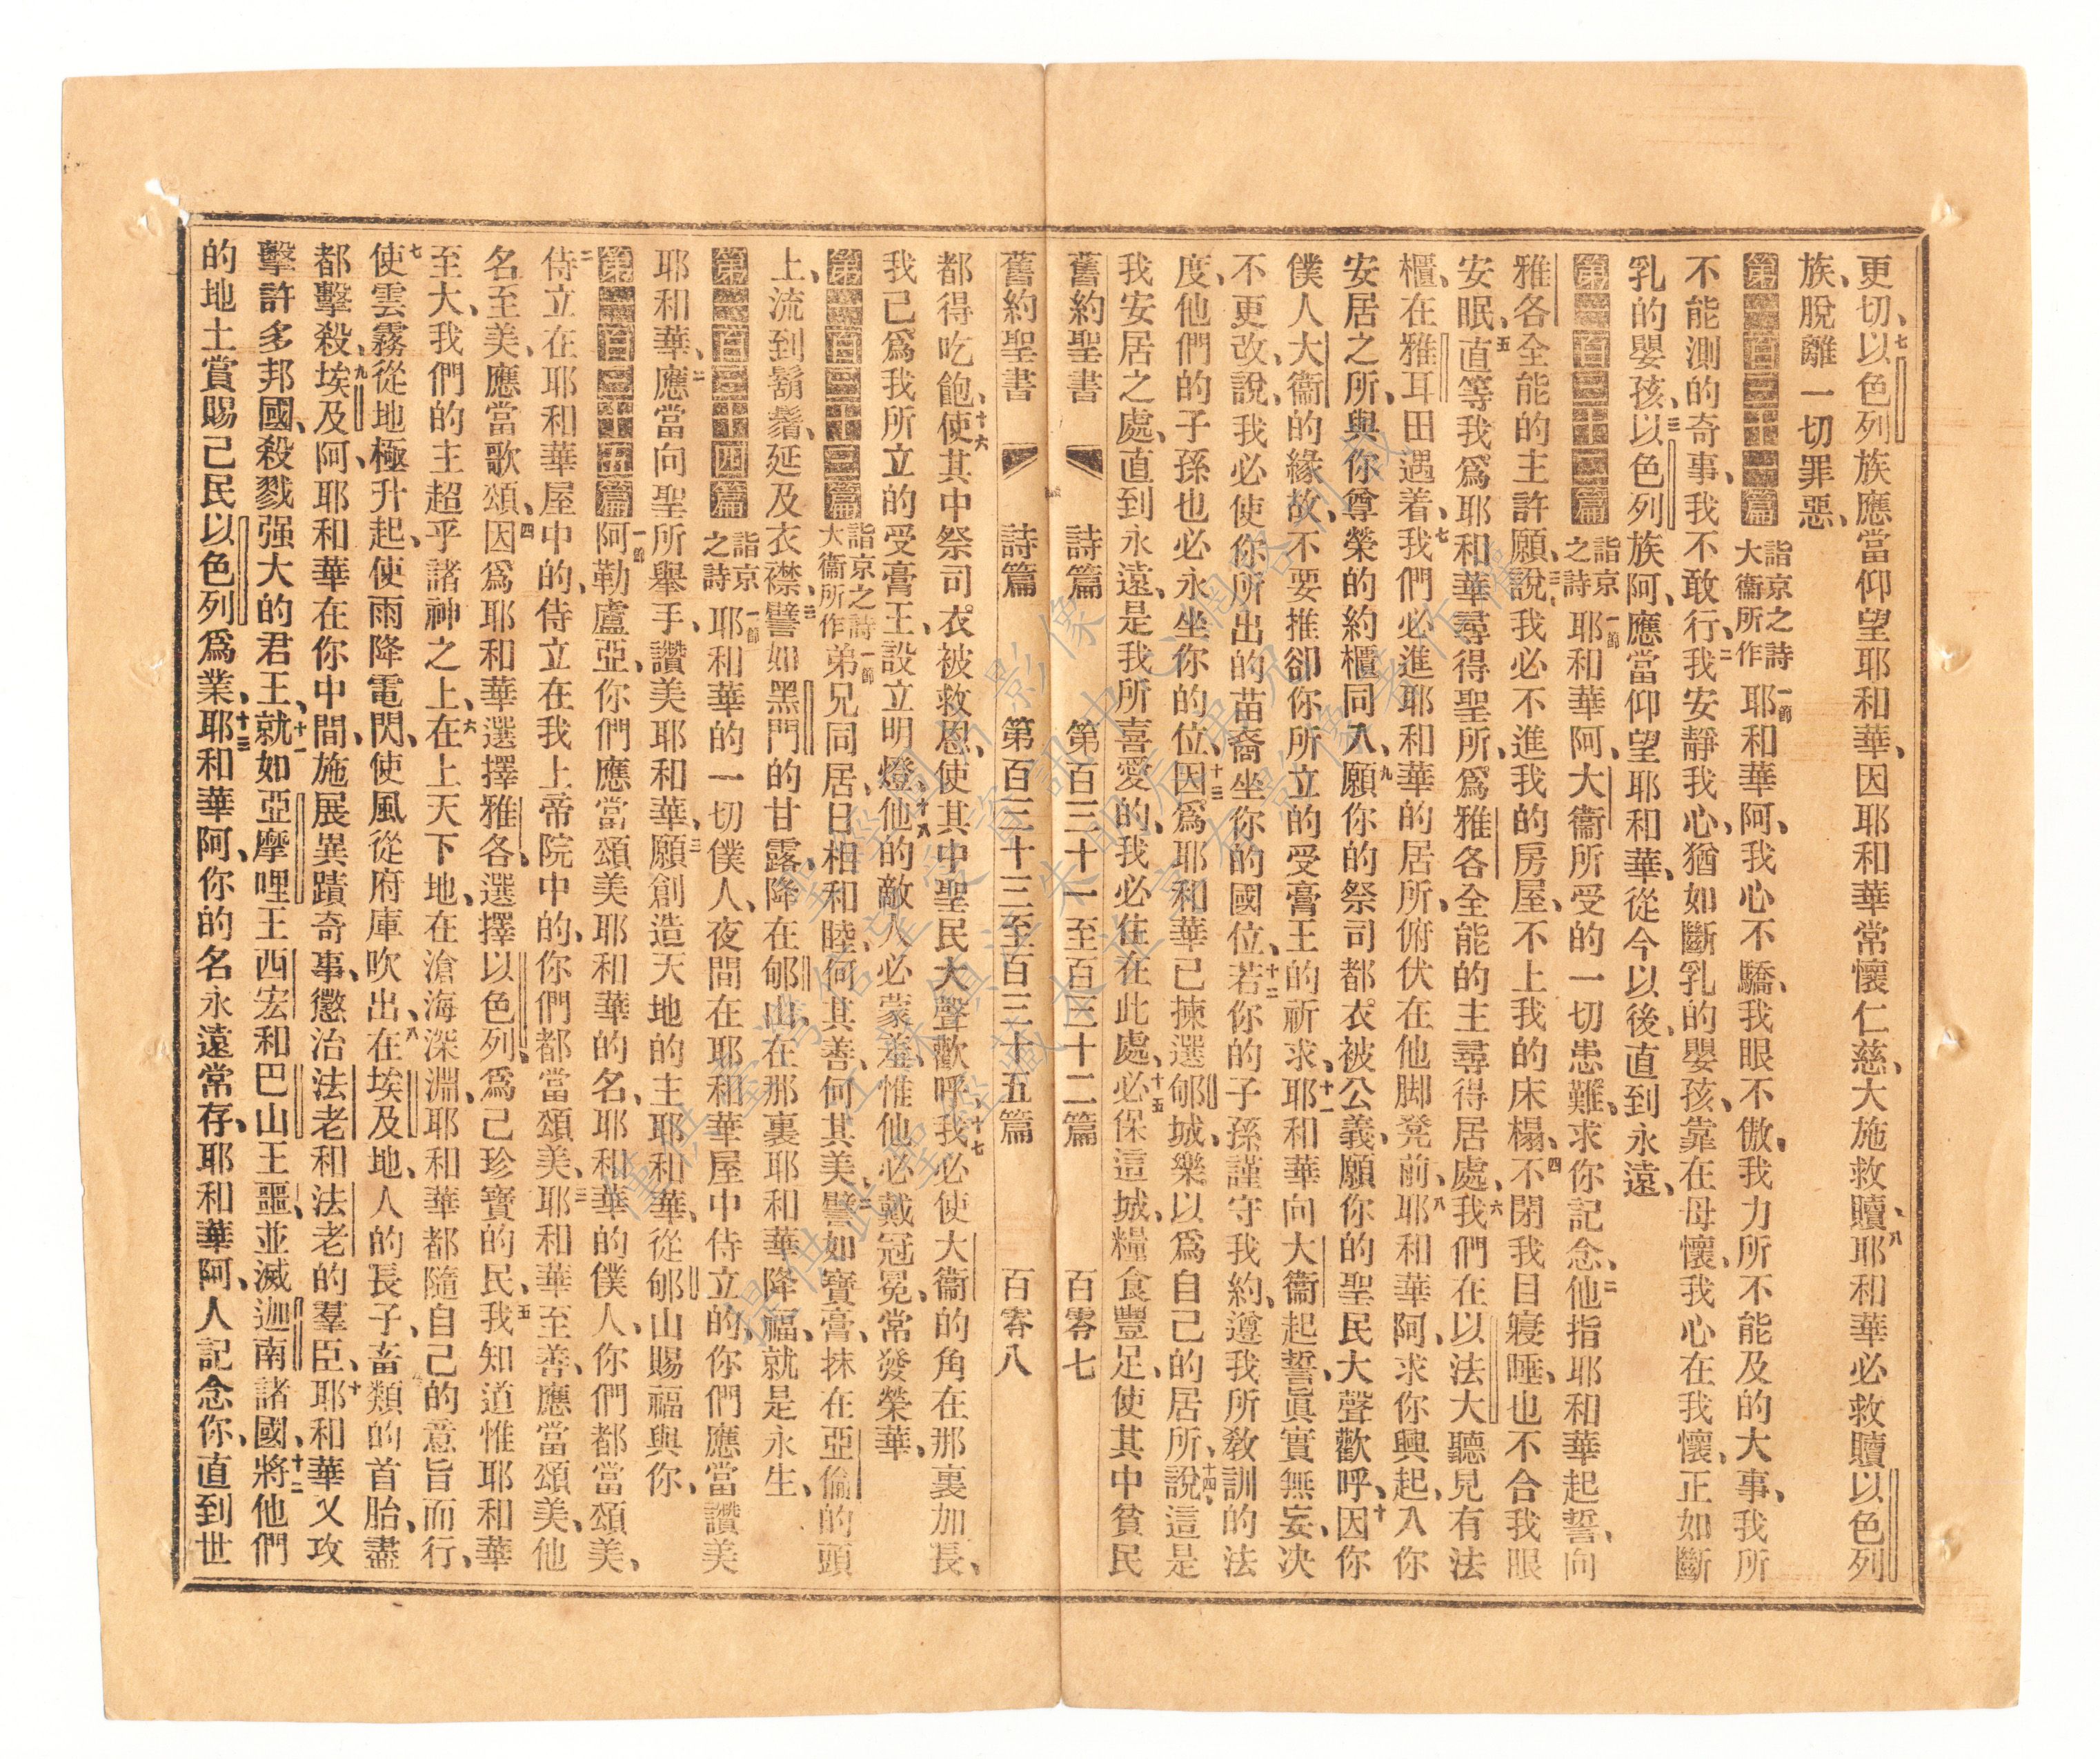 更切、七以色列族應當仰望耶和華、因耶和華常懷仁慈、大施救贖、八耶和華必救贖以色列
族、脫離一切罪惡、
第一百三十一篇 詣京之詩大衞所作 一節耶和華阿、我心不驕、我眼不傲、我力所不能及的大事、我所
不能測的奇事、我不敢行、二我安靜我心、猶如斷乳的嬰孩、靠在母懷、我心在我懷、正如斷
乳的嬰孩、三以色列族阿、應當仰望耶和華、從今以後、直到永遠、
第一百三十二篇 詣京之詩 一節耶和華阿、大衞所受的一切患難、求你記念、二他指耶和華起誓、向
雅各全能的主許願、三說我必不進我的房屋、不上我的床榻、四不閉我目寢睡、也不合我眼
安眠、五直等我爲耶和華尋得聖所、爲雅各全能的主尋得居處、六我們在以法大聽見有法
櫃、在雅耳田遇着、七我們必進耶和華的居所、俯伏在他脚凳前、八耶和華阿、求你興起、入你
安居之所、與你尊榮的約櫃同入、九願你的祭司都衣被公義、願你的聖民大聲歡呼、十因你
僕人大衞的緣故、不要推卻你所立的受膏王的祈求、十一耶和華向大衞起誓、眞實無妄、决
不更改、說、我必使你所出的苗裔坐你的國位、十二若你的子孫謹守我約、遵我所敎訓的法
度、他們的子孫也必永坐你的位、十三因爲耶和華已揀選郇城、樂以爲自己的居所、十四說、這是
我安居之處、直到永遠、是我所喜愛的、我必住在此處、十五必保這城、糧食豐足、使其中貧民
舊約聖書 詩篇 第百三十一至百三十二篇 百零七
舊約聖書 詩篇 第百三十三至百三十五篇 百零八
都得吃飽、十六使其中祭司衣被救恩、使其中聖民大聲歡呼、十七我必使大衞的角在那裏加長、
我已爲我所立的受膏王、設立明燈、十八他的敵人必蒙羞、惟他必戴冠冕、常發榮華、
第一百三十三篇 詣京之詩大衞所作 一節弟兄同居、日相和睦、何其善、何其美、二譬如寶膏、抹在亞倫的頭
上、流到鬍鬚、延及衣襟、三譬如黑門的甘露、降在郇山、在那裏耶和華降福、就是永生、
第一百三十四篇 詣京之詩 一節耶和華的一切僕人、夜間在耶和華屋中侍立的、你們應當讚美
耶和華、二應當向聖所舉手、讚美耶和華、三願創造天地的主耶和華、從郇山賜福與你、
第一百三十五篇 一節阿勒盧亞、你們應當頌美耶和華的名、耶和華的僕人、你們都當頌美、
二侍立在耶和華屋中的、侍立在我上帝院中的、你們都當頌美、三耶和華至善、應當頌美、他
名至美、應當歌頌、四因爲耶和華選擇雅各、選擇以色列、爲己珍寶的民、五我知道惟耶和華
至大、我們的主超乎諸神之上、六在上天下地、在滄海深淵、耶和華都隨自己的意旨而行、
七使雲霧從地極升起、使雨降電閃、使風從府庫吹出、八在埃及地、人的長子、畜類的首胎、盡
都擊殺、九埃及阿、耶和華在你中間、施展異蹟奇事、懲治法老和法老的羣臣、十耶和華又攻
擊許多邦國、殺戮强大的君王、十一就如亞摩哩王西宏和巴山王噩、並滅迦南諸國、十二將他們
的地土賞賜己民以色列爲業、十三耶和華阿、你的名永遠常存、耶和華阿、人記念你、直到世